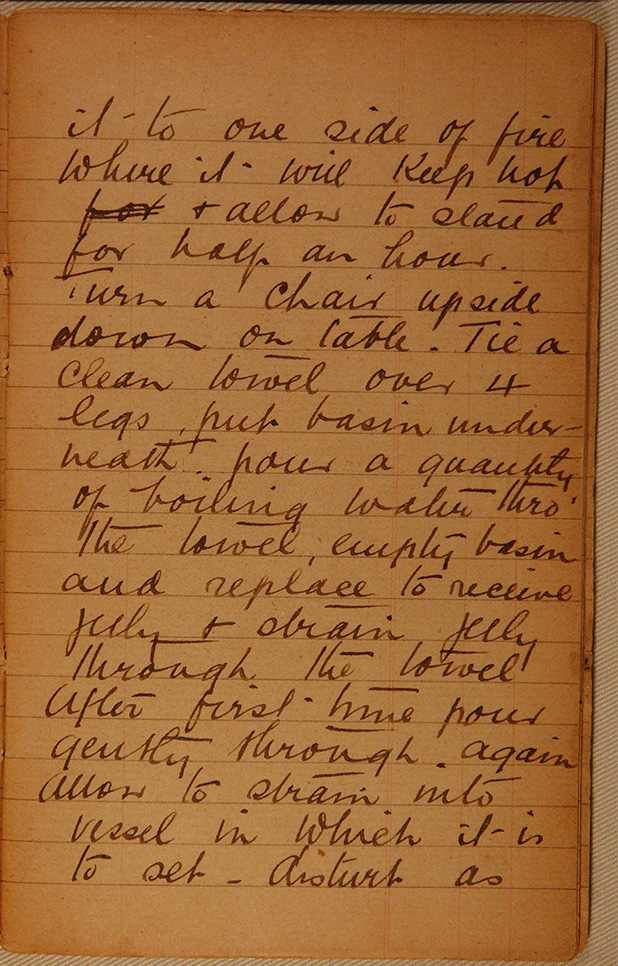 it to one side of fire
where it will keep hot
for & allow to stand
for half an hour.
Turn a chair upside
down on table. Tie a
clean towel over 4
legs, put basin under-
neath. pour a quantity
of boiling water thro'
the towel, empty basin
and replace to receive
jelly & strain jelly
through the towel
After first time pour
gently through. again
allow to strain into
vessel in which it is
to set - disturb as